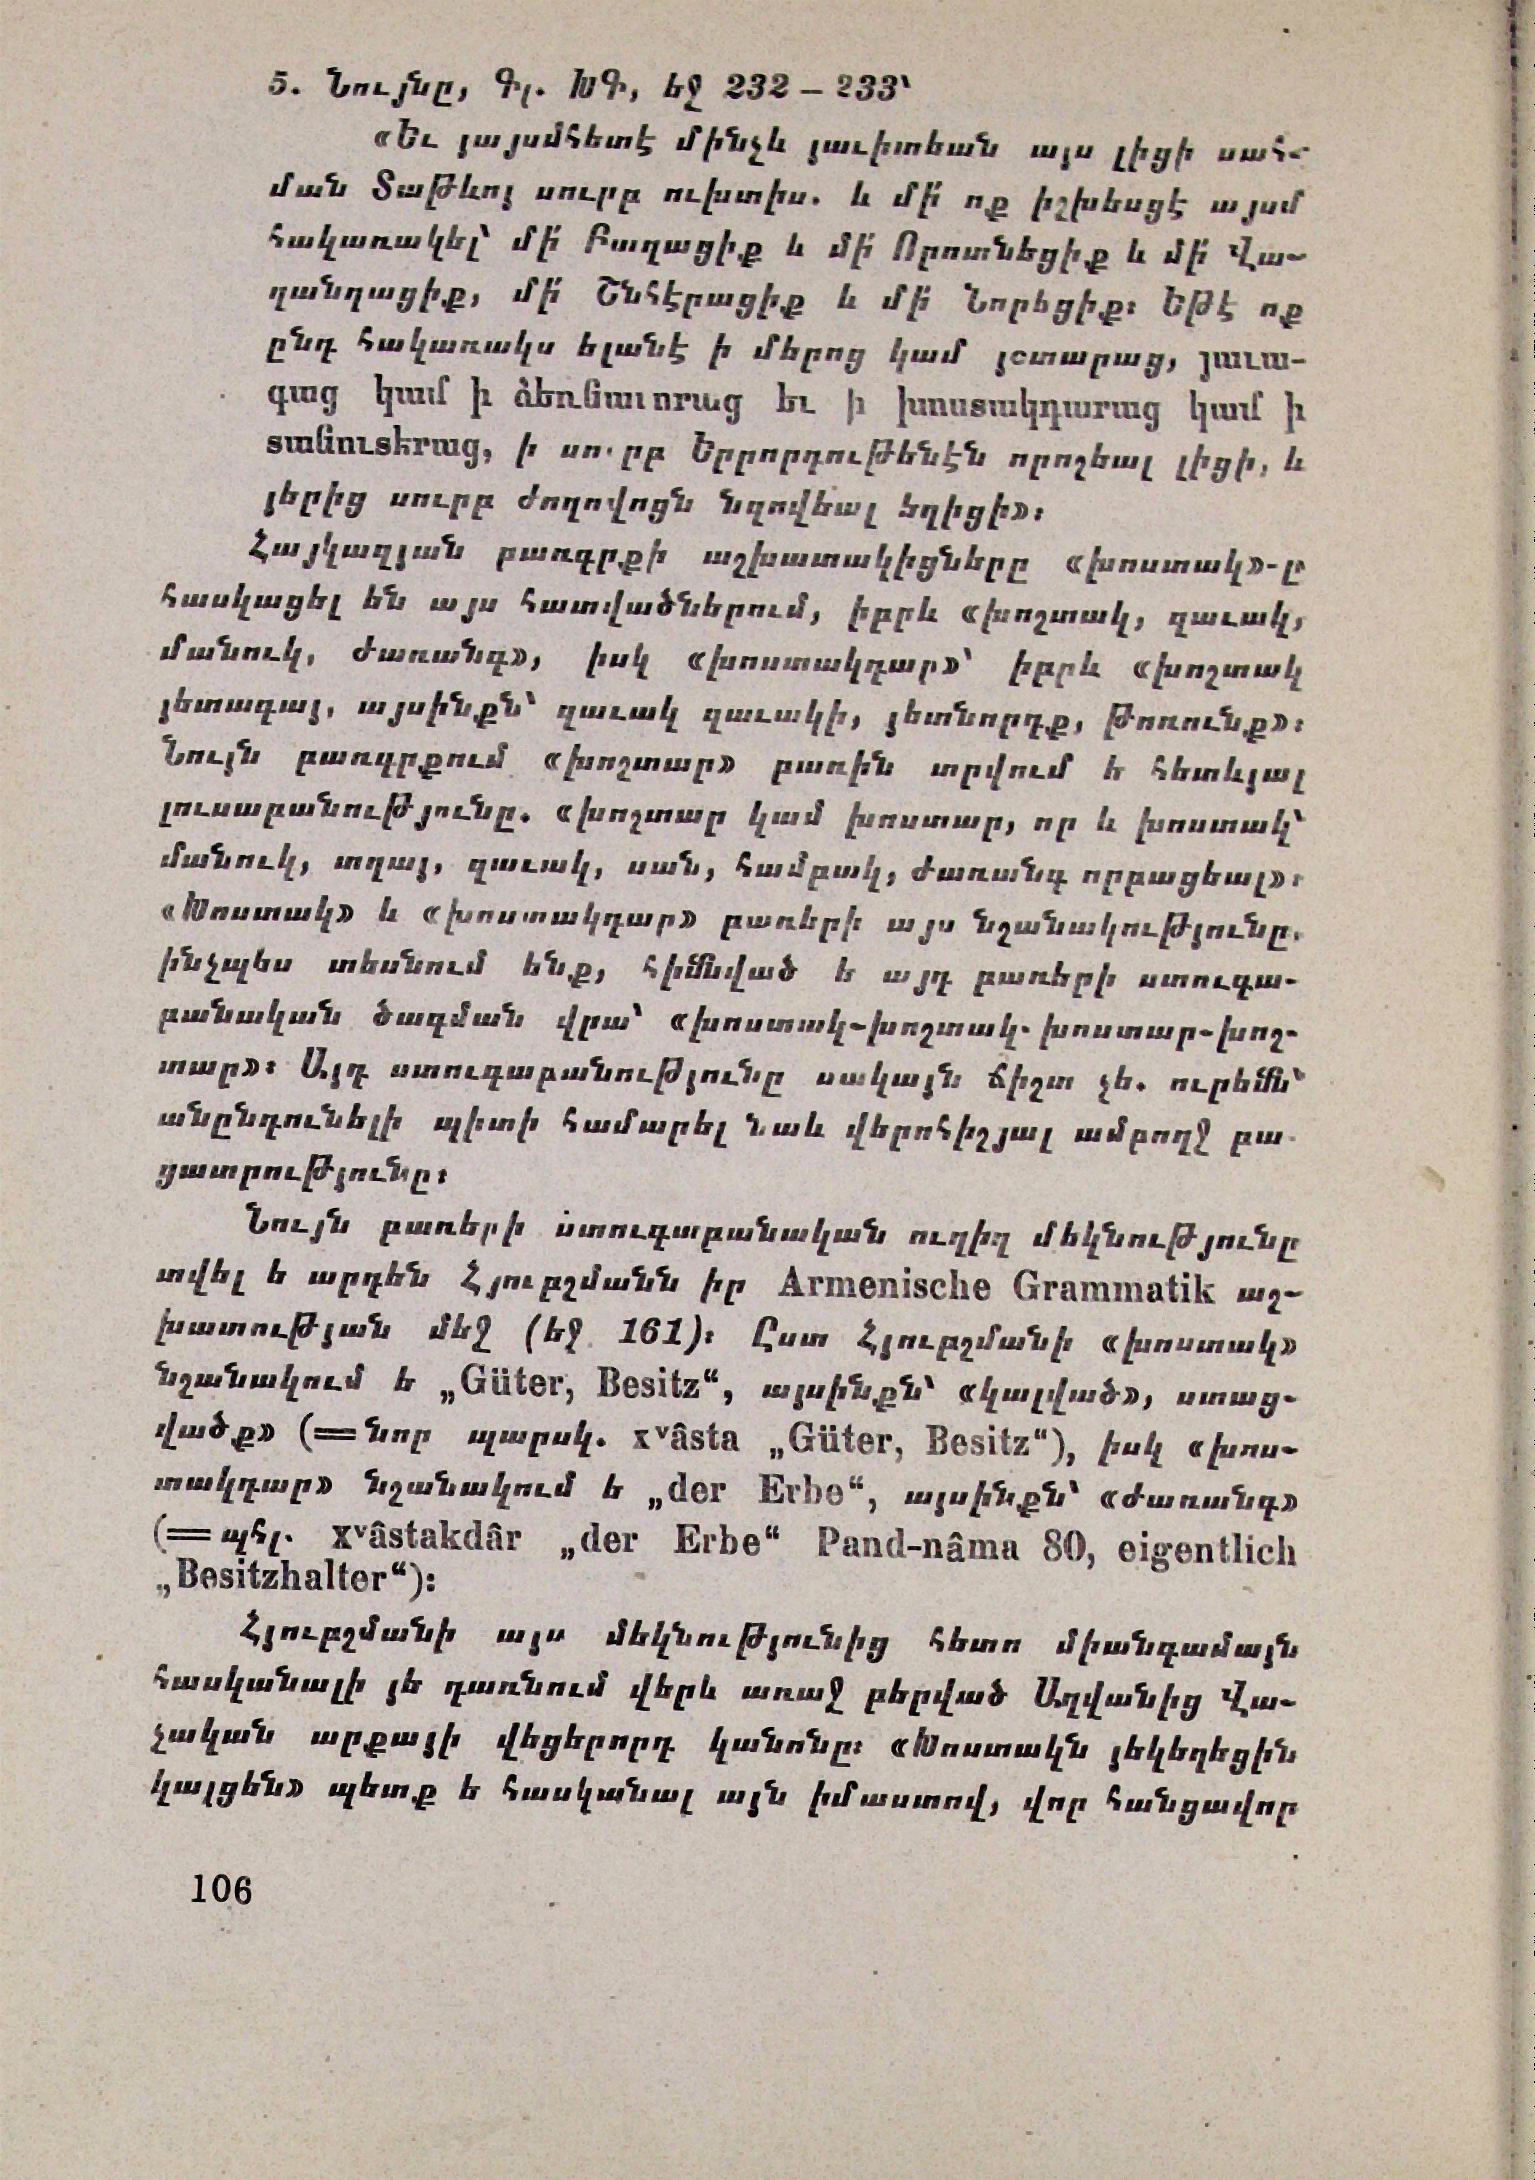 5. Նույնը, Գլ. ԽԳ, եջ 232 – 233՝
«Եւ յայսմհետէ մինչև յաւիտեան այս լիցի սահ-
ման Տաթևոյ սուրբ ուխտիս. և մի՛ ոք իշխեսցէ այսմ
հակառակել՝ մի՛ Բաղացիք և մի՛ Որոտնեցիք և մի՛ Վա-
ղանդացիք, մի՛ Շնհէրացիք և մի՛ Նորեցիք։ Եթէ ոք
ընդ հակառակս ելանէ ի մերոց կամ յօտարաց, յաւա-
գաց կամ ի ձեռնաւորաց եւ ի խոստակդարաց կամ ի
տանուտերաց, ի սուրբ Երրորդութենէն որոշեալ լիցի, և
յերից սուրբ ժողովոցն նզովեալ եղիցի»։
Հայկազյան բառգրքի աշխատակիցները «խոստակ»-ը
հասկացել են այս հատվածներում, իբրև «խոշտակ, զաւակ,
մանուկ, ժառանգ», իսկ «խոստակդար»՝ իբրև «խոշտակ
յետագայ, այսինքն՝ զաւակ զաւակի, յետնորդք, թոռունք»։
Նույն բառգրքում «խոշտար» բառին տրվում է հետևյալ
լուսաբանությունը. «խոշտար կամ խոստար, որ և խոստակ՝
մանուկ, տղայ, զաւակ, սան, համբակ, ժառանգ որբացեալ»։
«Խոստակ» և «խոստակդար» բառերի այս նշանակությունը,
ինչպես տեսնում ենք, հիմնված ե այդ բառերի ստուգա-
բանական ծագման վրա՝ «խոստակ-խոշտակ- խոստար-խոշ-
տար»։ Այդ ստուգաբանությունը սակայն ճիշտ չե. ուրեմն՝
անընդունելի պիտի համարել նաև վերոհիշյալ ամբողջ բա-
ցատրությունը։
Նույն բառերի ստուգաբանական ուղիղ մեկնությունը
տվել ե արդեն Հյուբշմանն իր Armenische Grammatik աշ-
խատության մեջ (եջ 161)։ Ըստ Հյուբշմանի «խոստակ»
նշանակում ե „Güter, Besitz“, այսինքն՝ «կալված», ստաց-
վածք» (=նոր պարսկ. xᵛâsta „Güter, Besitz“), իսկ «խոս-
տակդար» նշանակում ե „der Erbe“, այսինքն՝ «ժառանգ»
(=պհլ. xᵛâstakdâr „der Erbe“ Pand-nâma 80, eigentlich
„Besitzhalter“)։
Հյուբշմանի այս մեկնությունից հետո միանգամայն
հասկանալի յե դառնում վերև առաջ բերված Աղվանից Վա-
չական արքայի վեցերորդ կանոնը։ «Խոստակն յեկեղեցին
կալցեն» պետք ե հասկանալ այն իմաստով, վոր հանցավոր
106